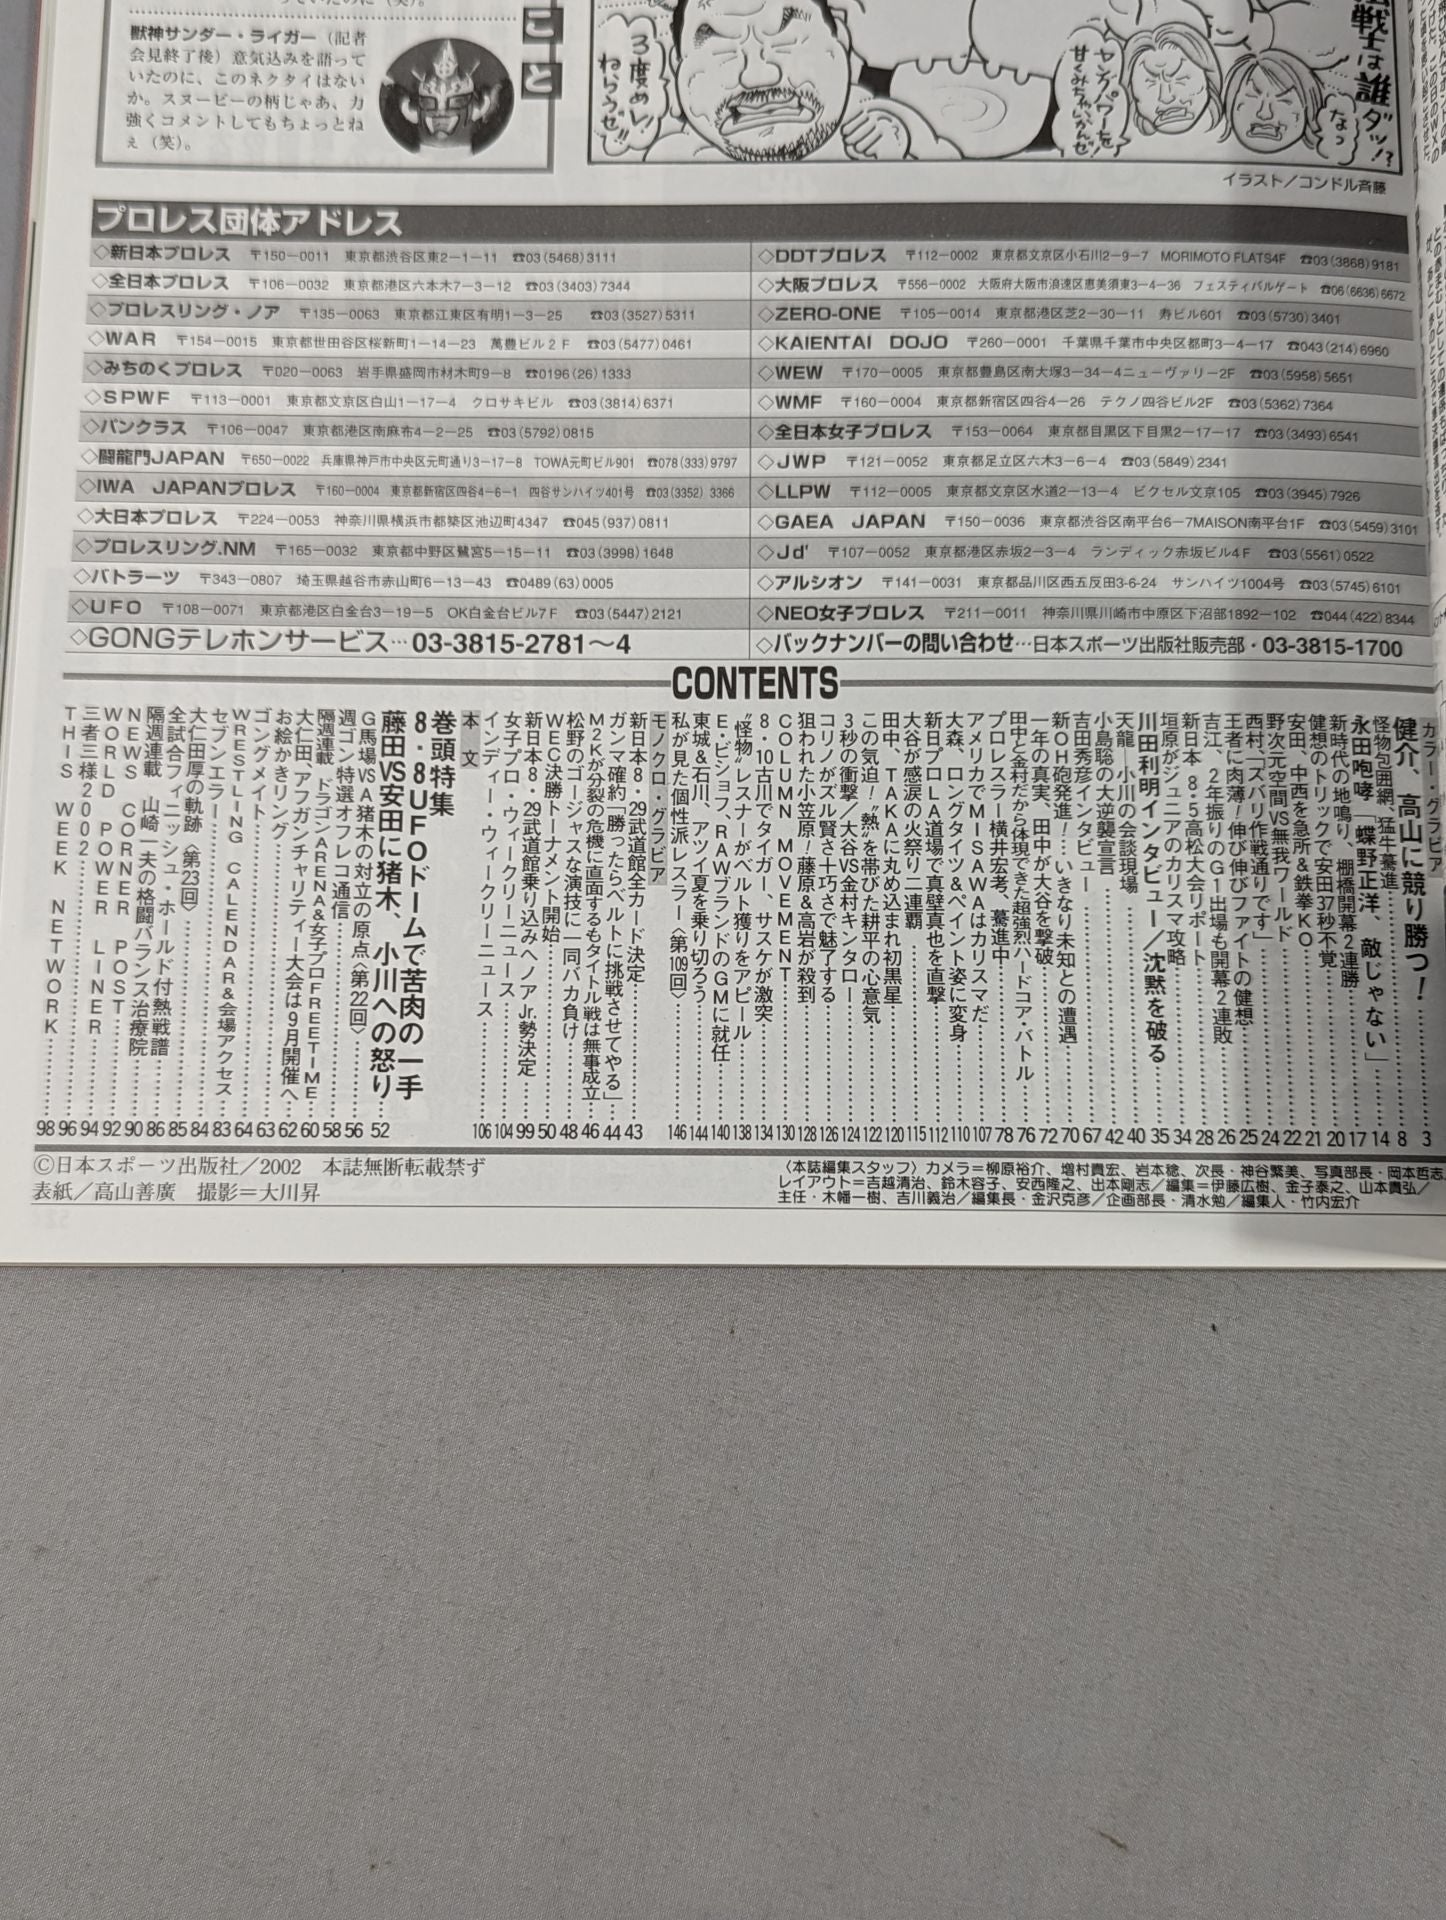 獣神サンダー・ライガー（記者
会見終了後）意気込みを語って
いたのに、このネクタイはない
か。スヌーピーの柄じゃあ、力
強くコメントしてもちょっとね
ぇ（笑）。
こと
3度め!!ねらうぜ!!
ヤングパワーを甘くみちゃいかんぜ!
戦士は誰ダッ!?
なっ
イラスト／コンドル斉藤
プロレス団体アドレス
◇新日本プロレス 〒150−0011 東京都渋谷区東2−1−11 ☎03(5468)3111
◇全日本プロレス 〒106−0032 東京都港区六本木7−3−12 ☎03(3403)7344
◇プロレスリング・ノア 〒135−0063 東京都江東区有明1−3−25 ☎03(3527)5311
◇WAR 〒154−0015 東京都世田谷区桜新町1−14−23 萬豊ビル2F ☎03(5477)0461
◇みちのくプロレス 〒020−0063 岩手県盛岡市材木町9−8 ☎0196(26)1333
◇SPWF 〒113−0001 東京都文京区白山1−17−4 クロサキビル ☎03(3814)6371
◇パンクラス 〒106−0047 東京都港区南麻布4−2−25 ☎03(5792)0815
◇闘龍門JAPAN 〒650−0022 兵庫県神戸市中央区元町通り3−17−8 TOWA元町ビル901 ☎078(333)9797
◇IWA JAPANプロレス 〒160−0004 東京都新宿区四谷4−6−1 四谷サンハイツ401号 ☎03(3352)3366
◇大日本プロレス 〒224−0053 神奈川県横浜市都築区池辺町4347 ☎045(937)0811
◇プロレスリング.NM 〒165−0032 東京都中野区鷺宮5−15−11 ☎03(3998)1648
◇バトラーツ 〒343−0807 埼玉県越谷市赤山町6−13−43 ☎0489(63)0005
◇UFO 〒108−0071 東京都港区白金台3−19−5 OK白金台ビル7F ☎03(5447)2121
◇GONGテレホンサービス…03-3815-2781〜4
◇DDTプロレス 〒112−0002 東京都文京区小石川2−9−7 MORIMOTO FLATS4F ☎03(3868)9181
◇大阪プロレス 〒556−0002 大阪府大阪市浪速区恵美須東3−4−36 フェスティバルゲート ☎06(6636)6672
◇ZERO-ONE 〒105−0014 東京都港区芝2−30−11 寿ビル601 ☎03(5730)3401
◇KAIENTAI DOJO 〒260−0001 千葉県千葉市中央区都町3−4−17 ☎043(214)6960
◇WEW 〒170−0005 東京都豊島区南大塚3−34−4ニューヴァリー2F ☎03(5958)5651
◇WMF 〒160−0004 東京都新宿区四谷4−26 テクノ四谷ビル2F ☎03(5362)7364
◇全日本女子プロレス 〒153−0064 東京都目黒区下目黒2−17−17 ☎03(3493)6541
◇JWP 〒121−0052 東京都足立区六木3−6−4 ☎03(5849)2341
◇LLPW 〒112−0005 東京都文京区水道2−13−4 ビクセル文京105 ☎03(3945)7926
◇GAEA JAPAN 〒150−0036 東京都渋谷区南平台6−7MAISON南平台1F ☎03(5459)3101
◇Jd' 〒107−0052 東京都港区赤坂2−3−4 ランディック赤坂ビル4F ☎03(5561)0522
◇アルシオン 〒141−0031 東京都品川区西五反田3-6-24 サンハイツ1004号 ☎03(5745)6101
◇NEO女子プロレス 〒211−0011 神奈川県川崎市中原区下沼部1892−102 ☎044(422)8344
◇バックナンバーの問い合わせ…日本スポーツ出版社販売部・03-3815-1700
CONTENTS
カラー・グラビア
健介、高山に競り勝つ！……3
怪物包囲網、猛牛驀進……8
永田咆哮「蝶野正洋、敵じゃない」……14
新時代の地鳴り、棚橋開幕2連勝……17
健想のトリックで安田37秒不覚……20
安田、中西を急所&鉄拳KO……21
野次元空間VS無我ワールド……22
西村、「ズバリ作戦通りです」……24
王者に肉薄！伸び伸びファイトの健想……25
吉江、2年振りのG1出場も開幕2連敗……26
新日本 8・5高松大会リポート……28
垣原がジュニアのカリスマ攻略……34
川田利明インタビュー／沈黙を破る……35
天龍―小川の会談現場……40
小島聡の大逆襲宣言……42
吉田秀彦インタビュー……67
新ROH砲発進！…いきなり未知との遭遇……70
一年の真実、田中が大谷を撃破……72
田中と金村だから体現できた超強烈ハードコア・バトル……76
プロレスラー横井宏考、驀進中……78
アメリカでMISAWAはカリスマだ……107
大森、ロングタイツ&ペイント姿に変身……110
新日プロLA道場で真壁真也を直撃……112
大谷が感涙の火祭り二連覇……115
田中、TAKAに丸め込まれ初黒星……120
この気迫！“熱”を帯びた耕平の心意気……122
3秒の衝撃／大谷VS金村キンタロー……124
コリノがズル賢さ十巧さで魅了する……126
狙われた小笠原！藤原&高岩が殺到……128
COLUMN MOVEMENT……130
8・10古川でタイガー、サスケが激突……134
“怪物”レスナーがベルト獲りをアピール……138
E・ビショフ、RAWブランドのGMに就任……140
東城&石川、アツイ夏を乗り切ろう……144
私が見た個性派レスラー〈第109回〉……146
モノクロ・グラビア
新日本8・29武道館全カード決定……43
ガンマ確約「勝ったらベルトに挑戦させてやる」……44
M2Kが分裂の危機に直面するもタイトル戦は無事成立……46
松野のゴージャスな演技に一同バカ負け……48
WEC決勝トーナメント開始……50
新日本8・29武道館乗り込みへノアJr.勢決定……99
女子プロ・ウィークリーニュース……104
インディー・ウィークリーニュース……106
本文
巻頭特集
8・8UFOドームで苦肉の一手
藤田VS安田に猪木、小川への怒り……52
G馬場VSA猪木の対立の原点〈第22回〉……56
週ゴン特選オフレコ通信……58
隔週連載 ドラゴンARENA&女子プロFREETIME……60
大仁田、アフガンチャリティー大会は9月開催へ……62
お絵かきリング……63
ゴングメイト……64
WRESTLING CALENDAR&会場アクセス……83
セブンエラー……84
大仁田厚の軌跡〈第23回〉……85
全試合フィニッシュ・ホールド付熱戦譜……86
隔週連載 山崎一夫の格闘バランス治療院……90
NEWS CORNER POST……92
WORLD POWER LINER……94
三者三様2002……96
THIS WEEK NETWORK……98
©日本スポーツ出版社／2002 本誌無断転載禁ず
表紙／高山善廣 撮影＝大川昇
〈本誌編集スタッフ〉カメラ＝柳原裕介、増村貴宏、岩本稔、次長・神谷繁美、写真部長・岡本哲志
レイアウト＝吉越清治、鈴木容子、安西隆之、出本剛志／編集＝伊藤広樹、金子泰之、山本貴弘／
主任・木幡一樹、吉川義治／編集長・金沢克彦／企画部長・清水勉／編集人・竹内宏介